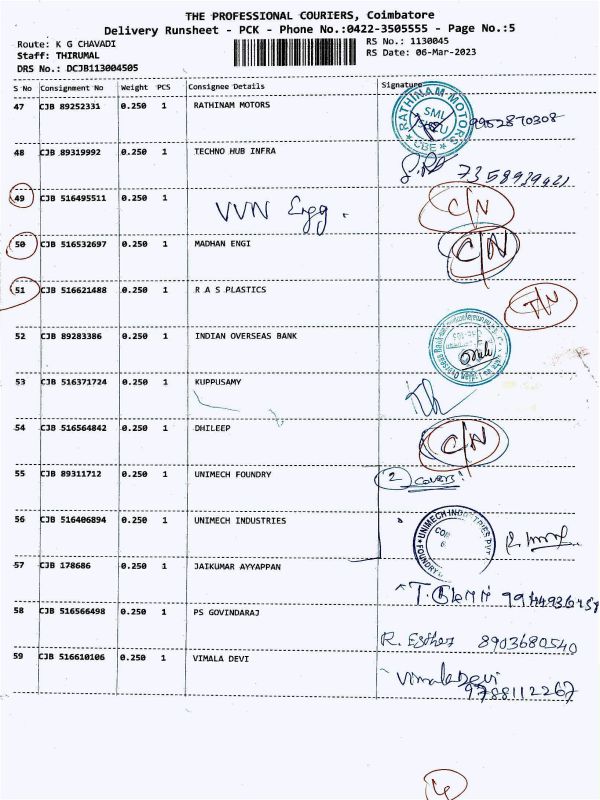 THE PROFESSIONAL COURIERS, Coimbatore
Delivery Runsheet - PCK - Phone No.:0422-3505555 - Page No.:5
Route: K G CHAVADI
RS No.: 1130045
Staff: THIRUMAL
RS Date: 06-Mar-2023
DRS No.: DCJB113004505
S No Consignment No Weight PCS Consignee Details Signature
47 CJB 89252331 0.250 1 RATHINAM MOTORS
RATHINAM MOTORS
SML
CBE
9952870308
48 CJB 89319992 0.250 1 TECHNO HUB INFRA
7358939421
49 CJB 516495511 VVN Engg. C/N
50 CJB 516532697 0.250 1 MADHAN ENGI C/N
51 CJB 516621488 0.250 1 R A S PLASTICS
52 CJB 89283386 0.250 1 INDIAN OVERSEAS BANK
53 CJB 516371724 0.250 1 KUPPUSAMY
54 CJB 516564842 0.250 1 DHILEEP C/N
55 CJB 89311712 0.250 1 UNIMECH FOUNDRY 2 covers
56 CJB 516406894 0.250 1 UNIMECH INDUSTRIES
UNIMECH INDUSTRIES PVT
FOUNDRY
57 CJB 178686 0.250 1 JAIKUMAR AYYAPPAN
58 CJB 516566498 0.250 1 PS GOVINDARAJ
R. Esther 8903680540
59 CJB 516610106 0.250 1 VIMALA DEVI
Vimala Devi
9788112267